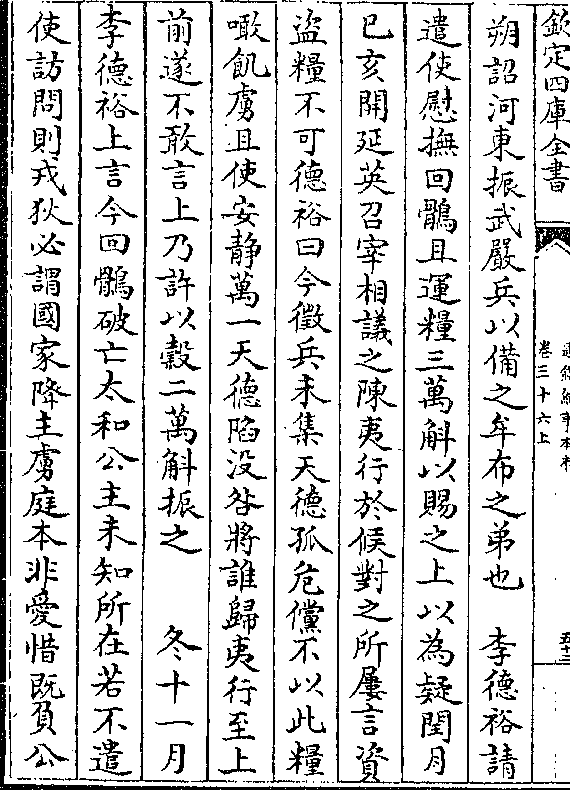 欽定四庫全書
通鑑紀事本末
卷三十六上
五十三
朔詔河東振武嚴兵以備之牟布之弟也　李德裕請
遣使慰撫回鶻且運糧三萬斛以賜之上以為疑閏月
已亥開延英召宰相議之陳夷行於候對之所屢言資
盜糧不可德裕曰今徵兵未集天德孤危儻不以此糧
噉飢虜且使安靜萬一天德陷没咎將誰歸夷行至上
前遂不敢言上乃許以糓二萬斛振之　冬十一月
李德裕上言今回鶻破亡太和公主未知所在若不遣
使訪問則戎狄必謂國家降主虜庭本非愛惜既負公